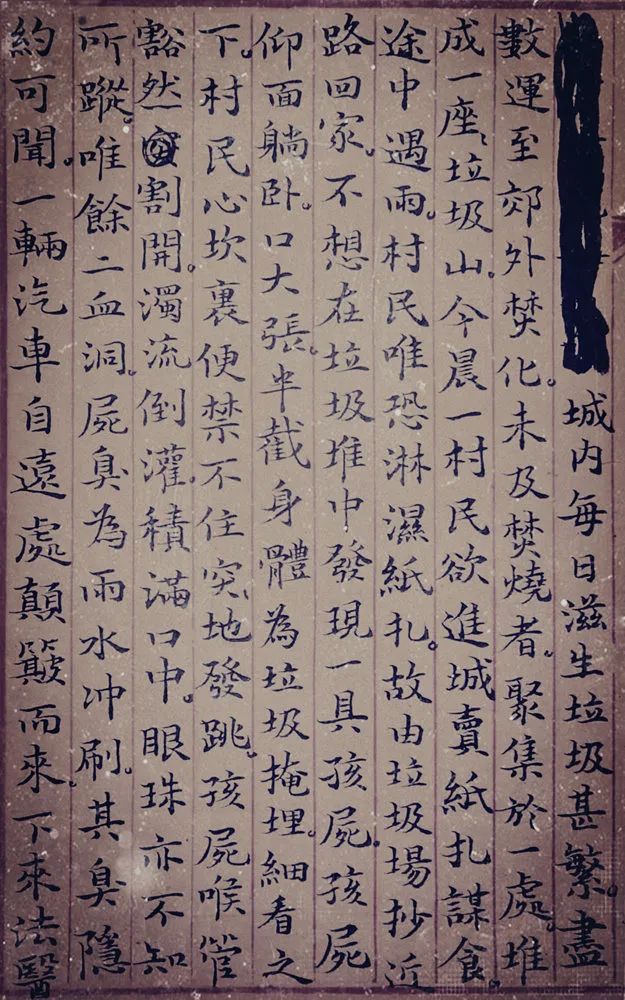 城内每日滋生垃圾甚繁。盡
數運至郊外焚化。未及焚燒者。聚集於一處。堆
成一座垃圾山。今晨一村民欲進城賣紙扎謀食。
途中遇雨。村民唯恐淋濕紙扎。故由垃圾場抄近
路回家。不想在垃圾堆中發現一具孩屍。孩屍
仰面躺卧。口大張。半截身體為垃圾掩埋。細看之
下。村民心坎裏便禁不住突地發跳。孩屍喉管
豁然割開。濁流倒灌。積滿口中。眼珠亦不知
所蹤。唯餘二血洞。屍臭為雨水冲刷。其臭隱
約可聞。一輛汽車自遠處顛簸而來。下來法醫